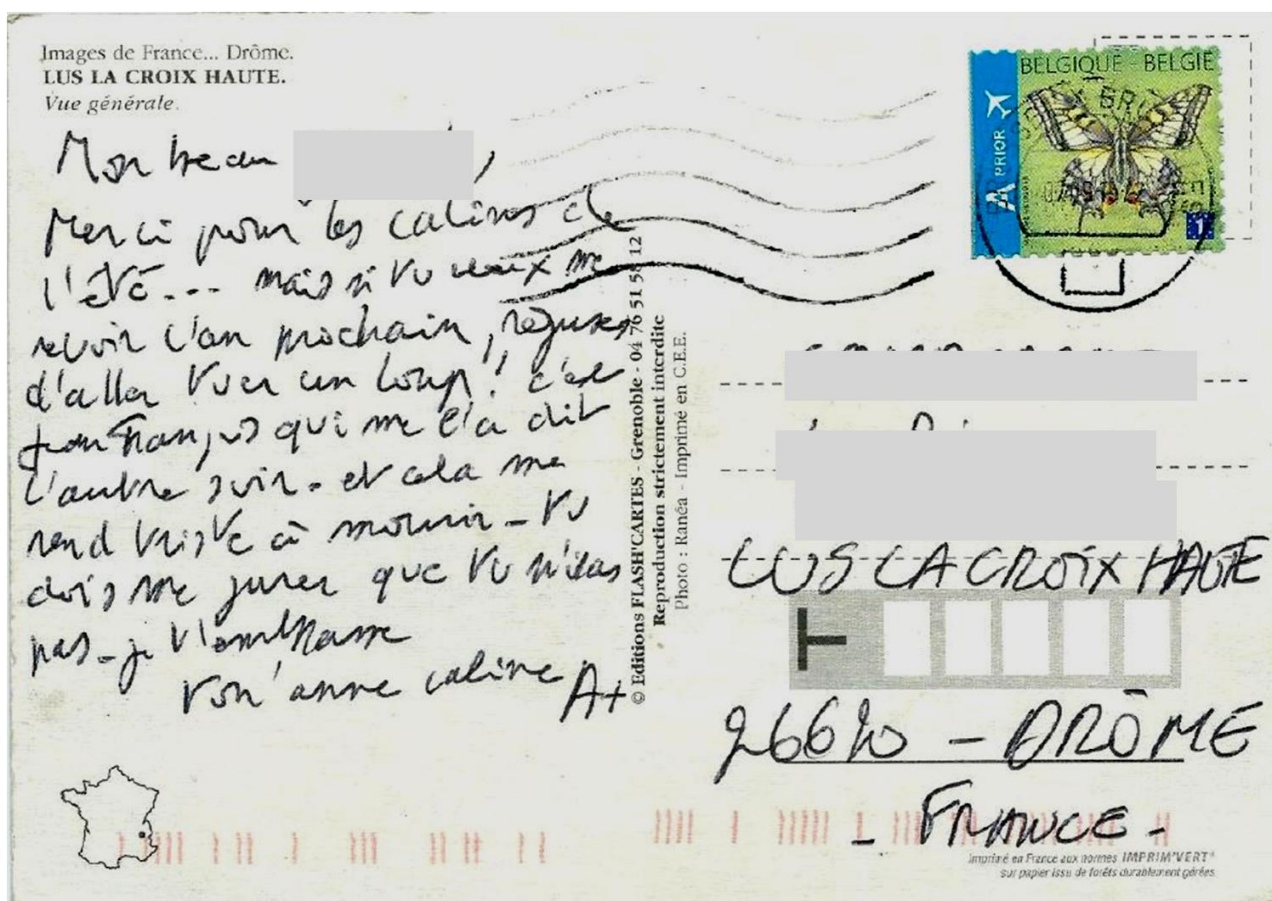 Images de France... Drôme.
LUS LA CROIX HAUTE.
Vue générale.
Mon beau
Merci pour les calins de
l'été --- mais si tu veux me
revoir l'an prochain, refuses
d'aller tuer un loup! c'est
Jean François qui me l'a dit
l'autre soir - et cela me
rend triste à mourir - tu
dois me jurer que tu n'iras
pas - je t'embrasse
ton anne caline
A+
© Editions FLASH'CARTES - Grenoble - 04 76 51 58 12
Reproduction strictement interdite
Photo : Ranéa - Imprimé en C.E.E.
BELGIQUE - BELGIE
A PRIOR
1
LUS LA CROIX HAUTE
26620 - DRÔME
- FRANCE -
Imprimé en France aux normes IMPRIM'VERT®
sur papier issu de forêts durablement gérées.